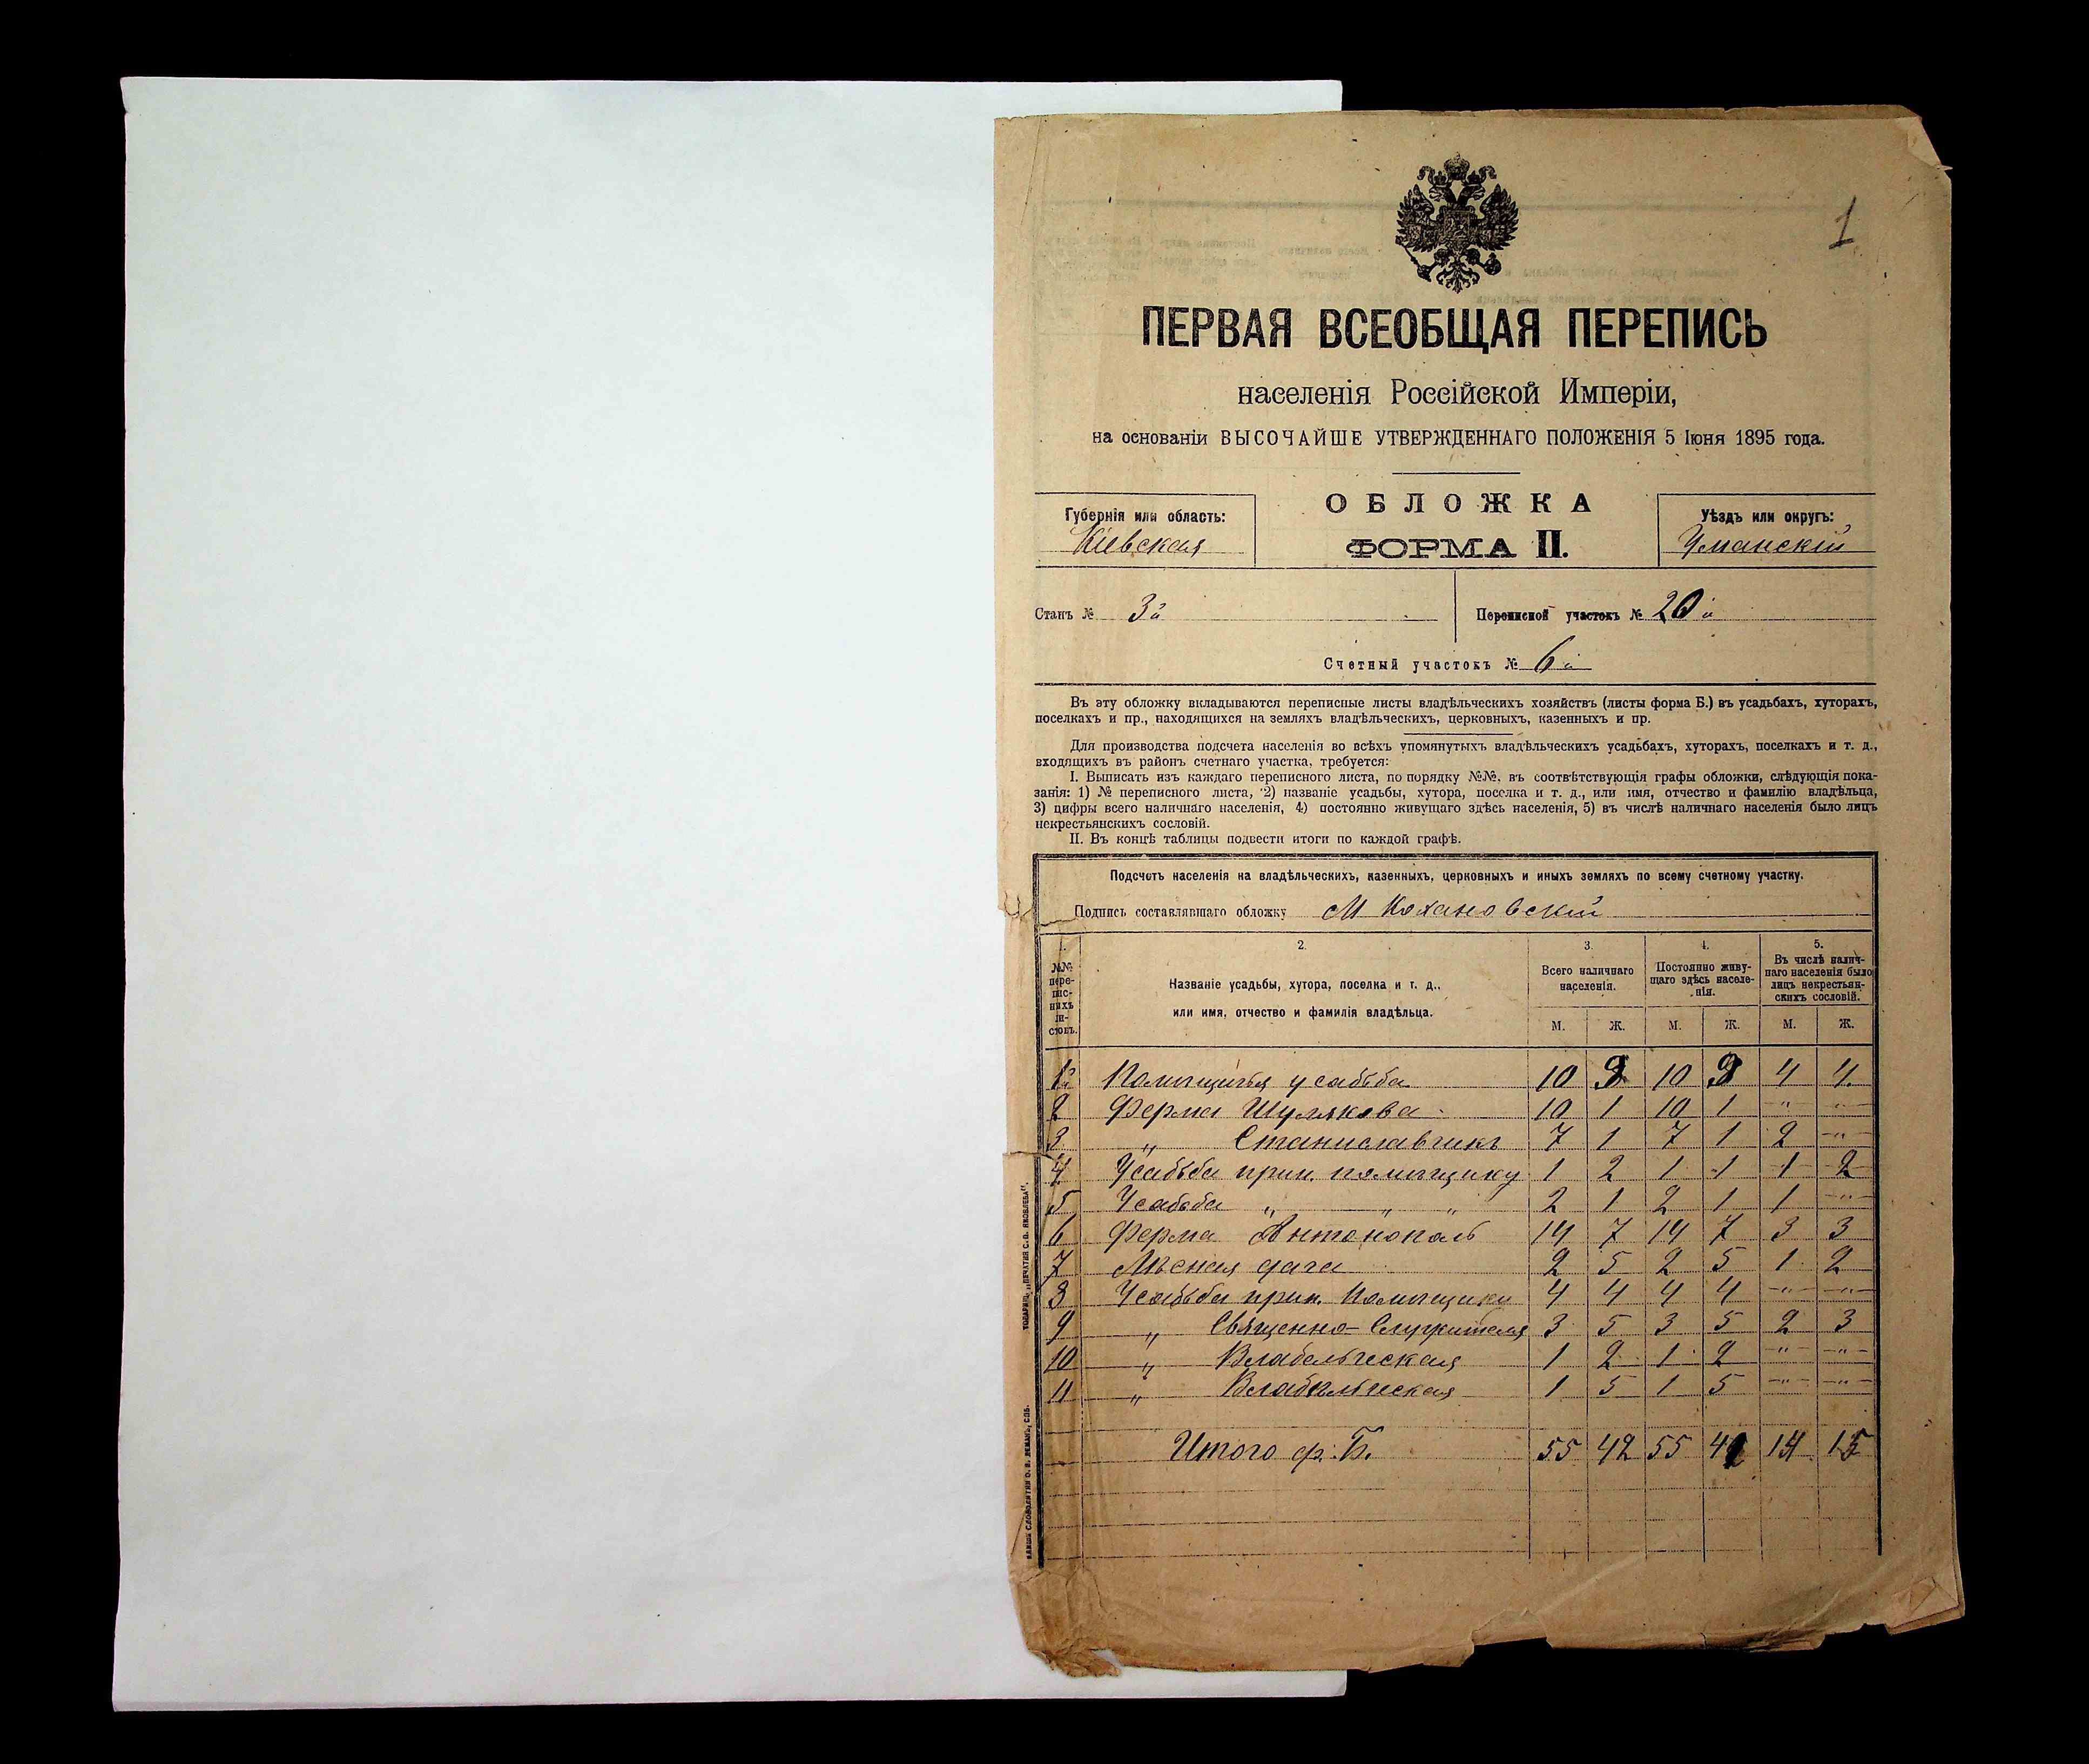 1
ПЕРВАЯ ВСЕОБЩАЯ ПЕРЕПИСЬ
населенія Россійской Имперіи,
на основаніи ВЫСОЧАЙШЕ УТВЕРЖДЕННАГО ПОЛОЖЕНІЯ 5 Іюня 1895 года.
Губернія или область:
Кіевская
ОБЛОЖКА
ФОРМА II.
Уѣздъ или округъ:
Уманскій
Станъ № 3й
Переписной участокъ № 20й
Счетный участокъ № 6й
Въ эту обложку вкладываются переписные листы владѣльческихъ хозяйствъ (листы форма Б.) въ усадьбахъ, хуторахъ,
поселкахъ и пр., находящихся на земляхъ владѣльческихъ, церковныхъ, казенныхъ и пр.
Для производства подсчета населенія во всѣхъ упомянутыхъ владѣльческихъ усадьбахъ, хуторахъ, поселкахъ и т. д.,
входящихъ въ районъ счетнаго участка, требуется:
I. Выписать изъ каждаго переписного листа, по порядку №№, въ соотвѣтствующія графы обложки, слѣдующія пока-
занія: 1) № переписного листа, 2) названіе усадьбы, хутора, поселка и т. д., или имя, отчество и фамилію владѣльца,
3) цифры всего наличнаго населенія, 4) постоянно живущаго здѣсь населенія, 5) въ числѣ наличнаго населенія было лицъ
некрестьянскихъ сословій.
II. Въ концѣ таблицы подвести итоги по каждой графѣ.
Подсчетъ населенія на владѣльческихъ, казенныхъ, церковныхъ и иныхъ земляхъ по всему счетному участку.
Подпись составлявшаго обложку М Кохановскій
1.
№№
пере-
пис-
ныхъ
ли-
стовъ.
2.
Названіе усадьбы, хутора, поселка и т. д.,
или имя, отчество и фамилія владѣльца.
3.
Всего наличнаго
населенія.
4.
Постоянно живу-
щаго здѣсь населе-
нія.
5.
Въ числѣ налич-
наго населенія было
лицъ некрестьян-
скихъ сословій.
М. Ж. М. Ж. М. Ж.
1й Помѣщичья усадьба 10 9 10 9 4 4
2 Ферма Шулякова 10 1 10 1 " "
3 " Станиславчикъ 7 1 7 1 2 "
4 Усадьба прин. помѣщику 1 2 1 1 1 2
5 Усадьба " " " 2 1 2 1 1 "
6 Ферма Антонополь 14 7 14 7 3 3
7 Лѣсная дача 2 5 2 5 1 2
8 Усадьба прин. Помѣщику 4 4 4 4 " "
9 " Священно-Служителя 3 5 3 5 2 3
10 " Владельческая 1 2 1 2 " "
11 " Владельческая 1 5 1 5 " "
Итого ф. Б. 55 42 55 41 14 15
ТОВАРИЩ. „ПЕЧАТНЯ С. П. ЯКОВЛЕВА".
БЛИЗЪ СЛОВОЛИТНИ О. И. ЛЕМАНЪ, СПБ.